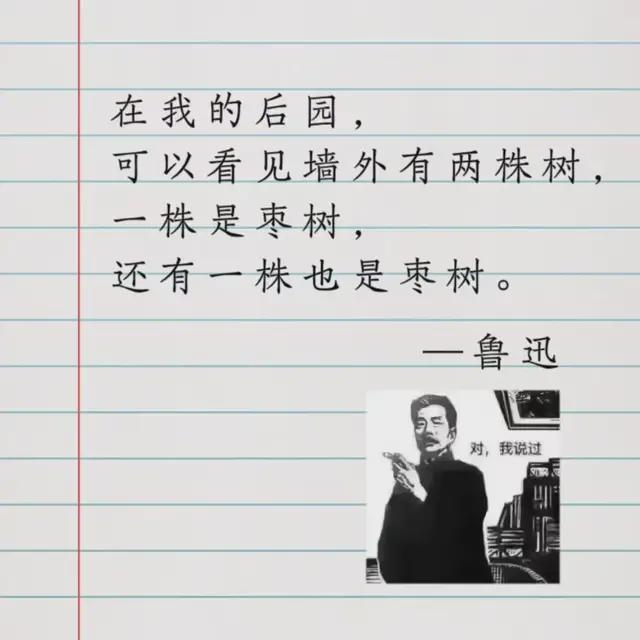 在我的后园，
可以看见墙外有两株树，
一株是枣树，
还有一株也是枣树。
—鲁迅
对，我说过